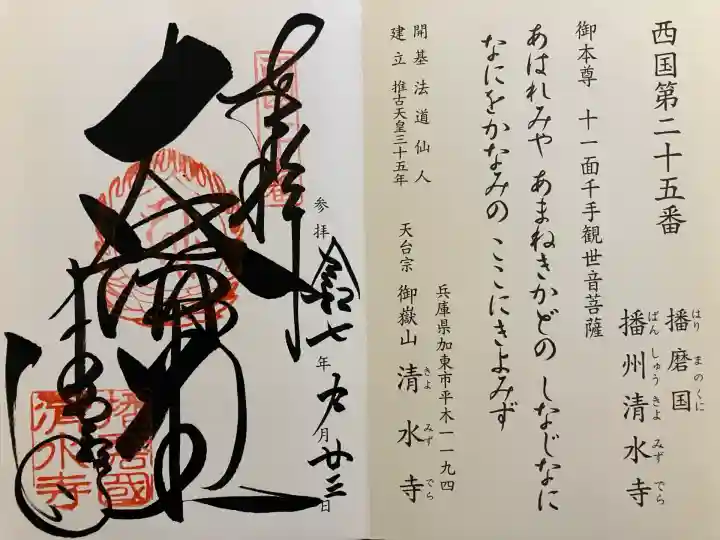 西国第二十五番
播磨国
はりまのくに
播州清水寺
ばんしゅうきよみずでら
御本尊 十一面千手観世音菩薩
あはれみや あまねきかどの しなじなに
なにをかなみの ここにきよみず
開基 法道仙人
建立 推古天皇三十五年
兵庫県加東市平木一一九四
天台宗 御嶽山 清水寺
きよみずでら
奉拝
参拝 令和七年九月廿三日
大悲殿
播磨国
清水寺